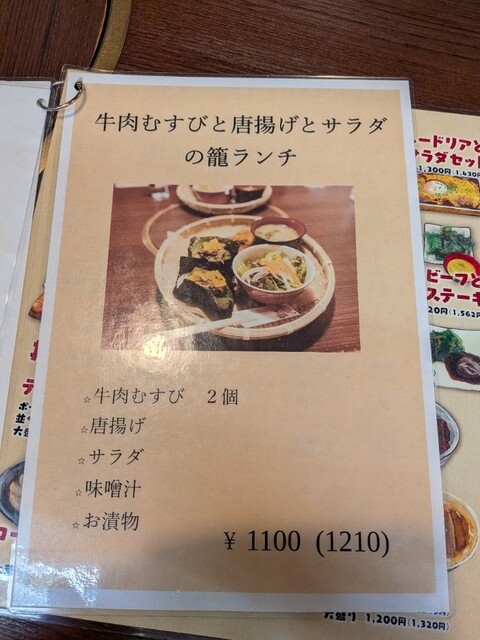 牛肉むすびと唐揚げとサラダ
の籠ランチ
☆牛肉むすび　２個
☆唐揚げ
☆サラダ
☆味噌汁
☆お漬物
¥ 1100 (1210)
ードリアと
サラダセット
1,300円(1,430
ビーフと
ステーキ
20円(1,562
大盛り 1,200円(1,320)